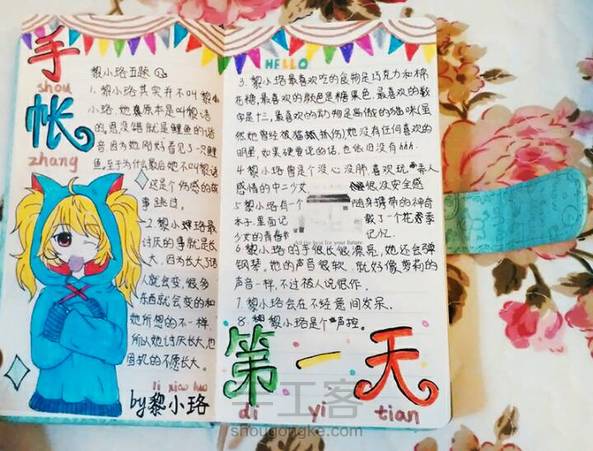 手
shou
帐
zhang
黎小珞五题
1. 黎小珞其实并不叫黎小
珞,她原本是叫黎语
的,您没错就是鲤鱼的谐
音因为她刚好看见了一只鲤
鱼,至于为什么最后她不叫黎语
这是个伤感的故
事 跳过。
2. 黎小珞最
讨厌的事就是长
大,因为长大了
人就会变,很多
东西就会变的和
她所想的不一样,
所以她讨厌长大,也
不愿长大。
li xiao luo
by黎小珞
HELLO
3. 黎小珞最喜欢吃的食物是巧克力和棉
花糖,最喜欢的颜色是糖果色,最喜欢的数
字是十三,最喜欢的动物是高傲的猫咪(虽
然她曾经被猫抓伤)她没有任何喜欢的
明星,如果硬要说的话,也依旧没有hhh.
4. 黎小珞曾是个没心没肺喜欢玩弄人
感情的中二少女 很没安全感
5. 黎小珞有一个 随身携带的神奇
本子,里面记 载了一个花季
少女的青春 记忆.
6. 黎小珞的手很长很漂亮,她还会弹
钢琴。她的声音很软,就好像萝莉的
声音一样,不过被人说做作。
7. 黎小珞会在不经意间发呆.
8. 黎小珞是个声控。
第一天
di yi tian
手工客
shougongke.com